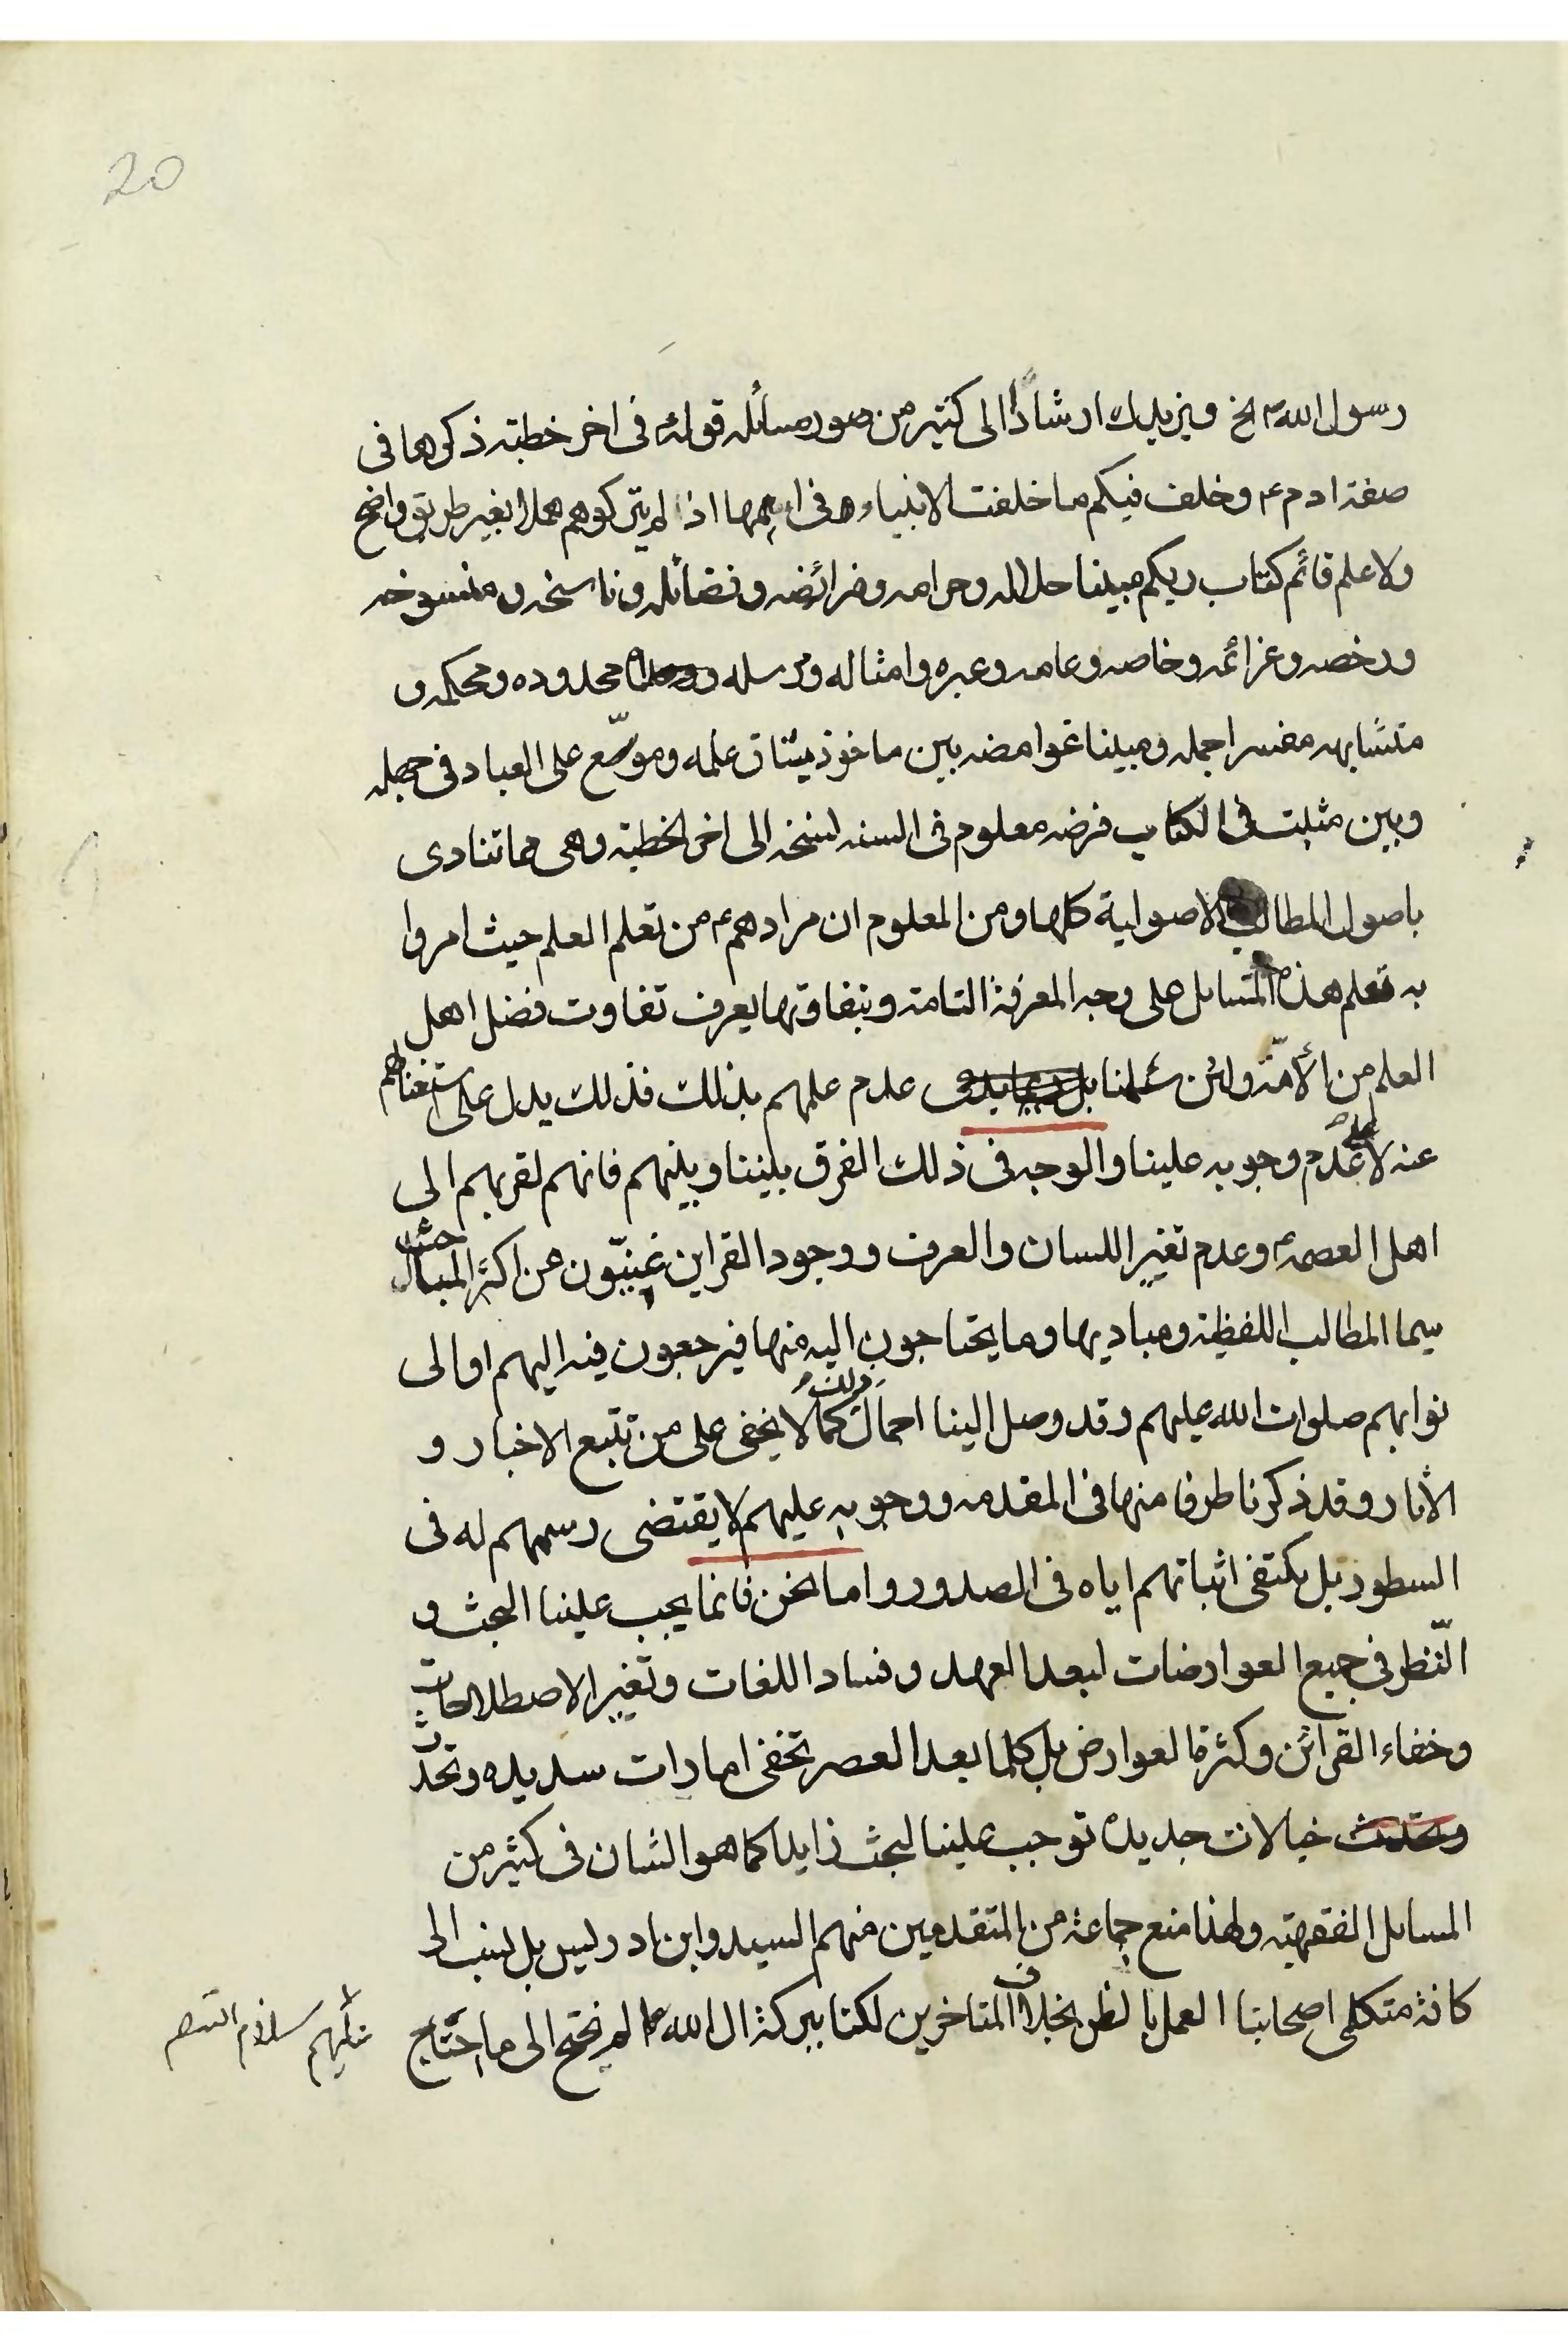 20
رسول الله ص الخ ويزيدك ارشادًا الى كثير من صور مسائله قوله ع في اخر خطبته ذكرها في
صفة ادم ع وخلف فيكم ما خلفت الانبياء في اممها اذا لم يتركوهم هملا بغير طريق واضح
ولا علم قائم كتاب ربكم مبينا حلاله وحرامه وفرائضه وفضائله وناسخه ومنسوخه
ورخصه وعزائمه وخاصه وعامه وعبره وامثاله ومرسله محدوده ومحكمه و
متشابهه مفسرا جمله ومبينا غوامضه بين ماخوذ ميثاق علمه وموسّع على العباد في جهله
وبين مثبت في الكتاب فرضه معلوم في السنه نسخه الى اخر الخطبة وهى مما تنادى
باصول المطالب الاصولية كلها ومن المعلوم ان مرادهم ع من تعلم العلم حيث امروا
به تعلم هذه المسايل على وجه المعرفة التامة وبتفاوتها يعرف تفاوت فضل اهل
العلم من الأمّة ولئن سلمنا عدم علمهم بذلك فذلك يدل على استغنائهم
عنه لا على عدم وجوبه علينا والوجه في ذلك الفرق بيننا وبينهم فانهم لقربهم الى
اهل العصمة ع وعدم تغير اللسان والعرف ووجود القراين غنيّون عن اكثر المباحث
سيما المطالب اللفظية ومباديها وما يحتاجون اليه منها فيرجعون فيه اليهم او الى
نوابهم صلوات الله عليهم وقد وصل الينا احمال ذلك كما لا يخفى على من تتبع الاخبار و
الاثار وقد ذكرنا طرفا منها في المقدمه ووجوبه عليهم لا يقتضى رسمهم له في
السطور بل يكتفى اثباتهم اياه في الصدور واما نحن فانما يجب علينا البحث و
النّظر في جميع العوارضات لبعد العهد وفساد اللغات وتغير الاصطلاحات
وخفاء القرائن وكثرة العوارض بل كلما بعد العصر تخفى امارات سديده وتحدث
وتحدث خيالات جديده توجب علينا لبحث زايدا كما هو الشان في كثير من
المسايل الفقهية ولهذا منع جماعة من المتقدمين منهم السيد وابن ادريس بل نسب الى
كافة متكلمى اصحابنا العمل بالظن بخلاف المتاخرين لكنا ببركة ال الله ع لم نحتج الى ما احتاج
عليهم سلام الله